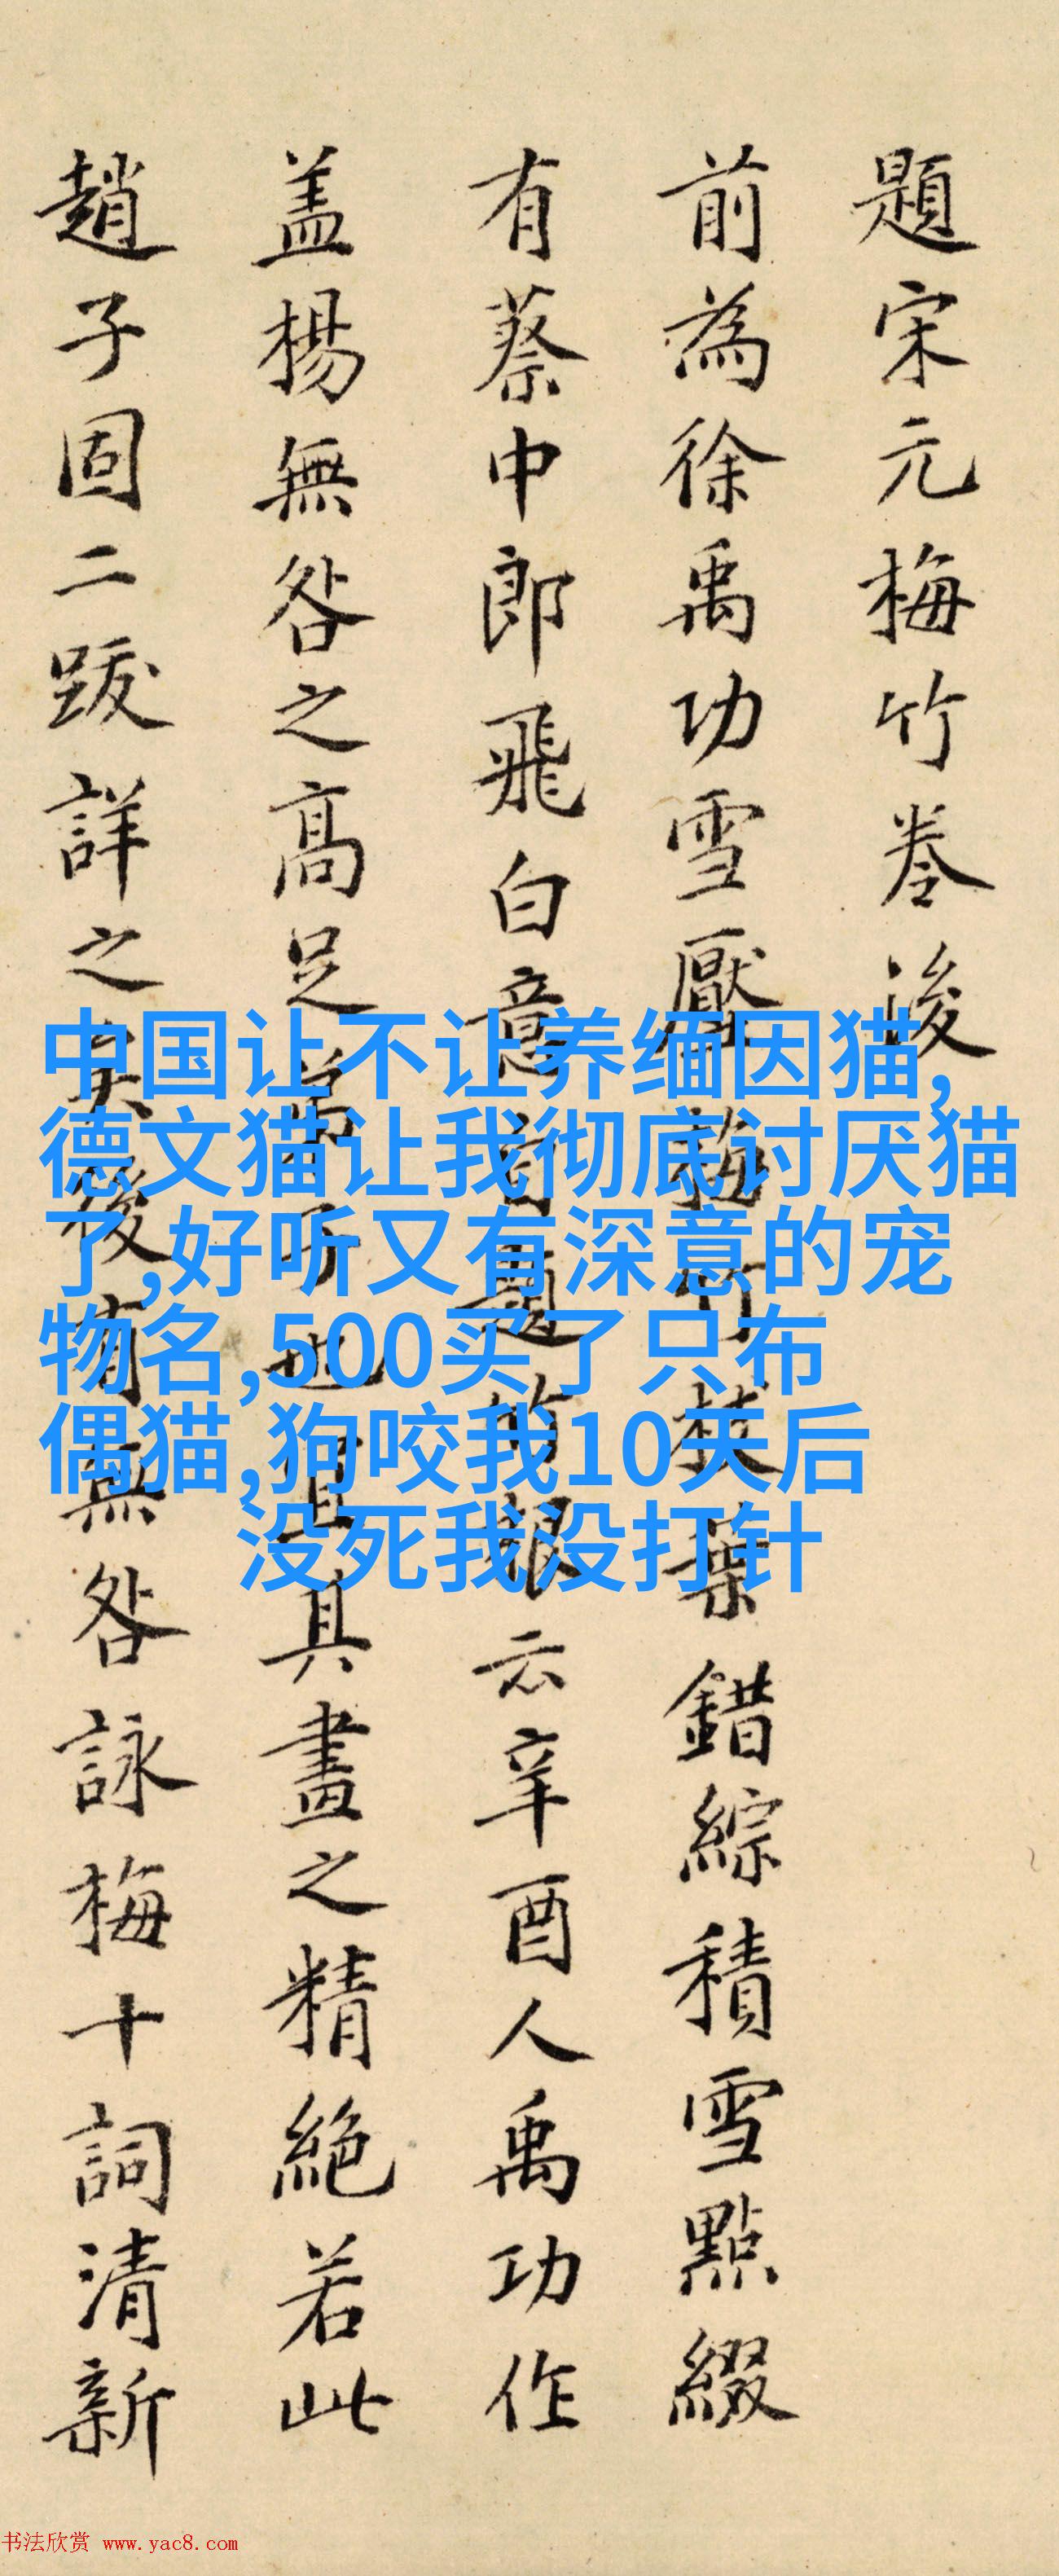 題宋元梅竹卷後
前為徐禹功雪壓梅竹枝葉錯綜積雪點綴
有蔡中郎飛白意自題辛酉人禹功作
盖楊無咎之高足弟子也宜其畫之精絕若此
趙子固二跋詳之矣後有無咎詠梅十詞清新
中国让不让养缅因猫,
德文猫让我彻底讨厌猫
了,好听又有深意的宠
物名,500买了只布
偶猫,狗咬我10天后
没死我没打针
书法欣赏 www.yac8.com